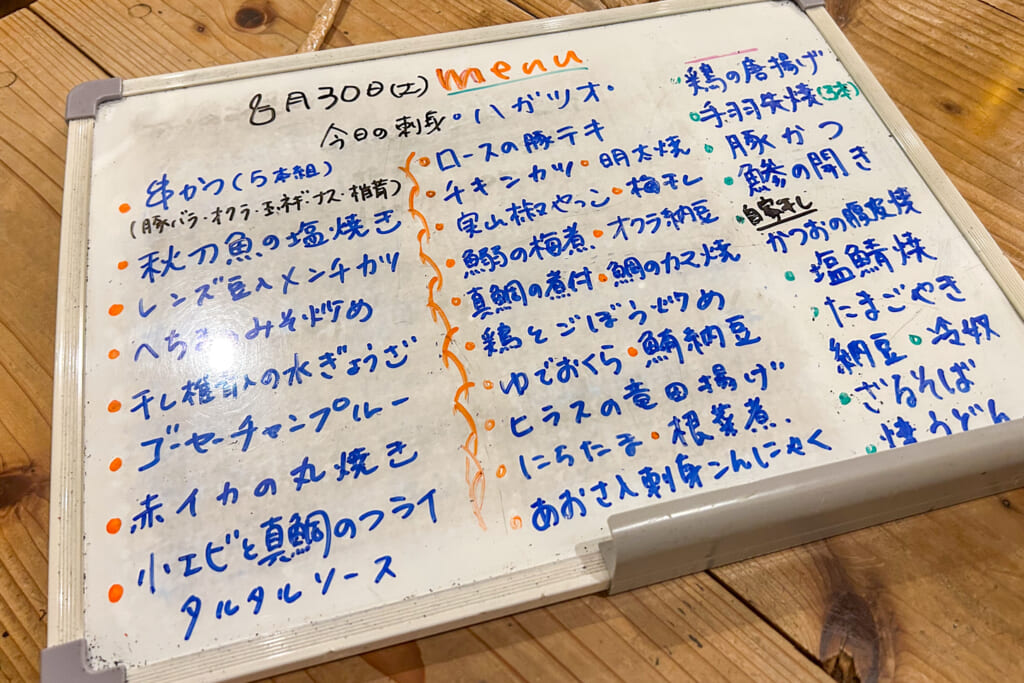 8月30日(土) menu
今日の刺身・ハガツオ・
串かつ(5本組)
(豚バラ・オクラ・玉ネギ・ナス・椎茸)
秋刀魚の塩焼き
レンズ豆入メンチカツ
へちまのみそ炒め
干し椎茸入の水ぎょうざ
ゴーヤーチャンプルー
赤イカの丸焼き
小エビと真鯛のフライ
タルタルソース
ロースの豚テキ
チキンカツ・明太焼
実山椒やっこ・梅干し
鰯の梅煮・オクラ納豆
真鯛の煮付・鯛のカマ焼
鶏とごぼう炒め
ゆでおくら・鮪納豆
ヒラスの竜田揚げ
にらたま・根菜煮
あおさ入刺身こんにゃく
鶏の唐揚げ
手羽先焼(3本)
豚かつ
鯵の開き
自家干し
かつおの腹皮焼
塩鯖焼
たまごやき
納豆・冷奴
ざるそば
焼うどん